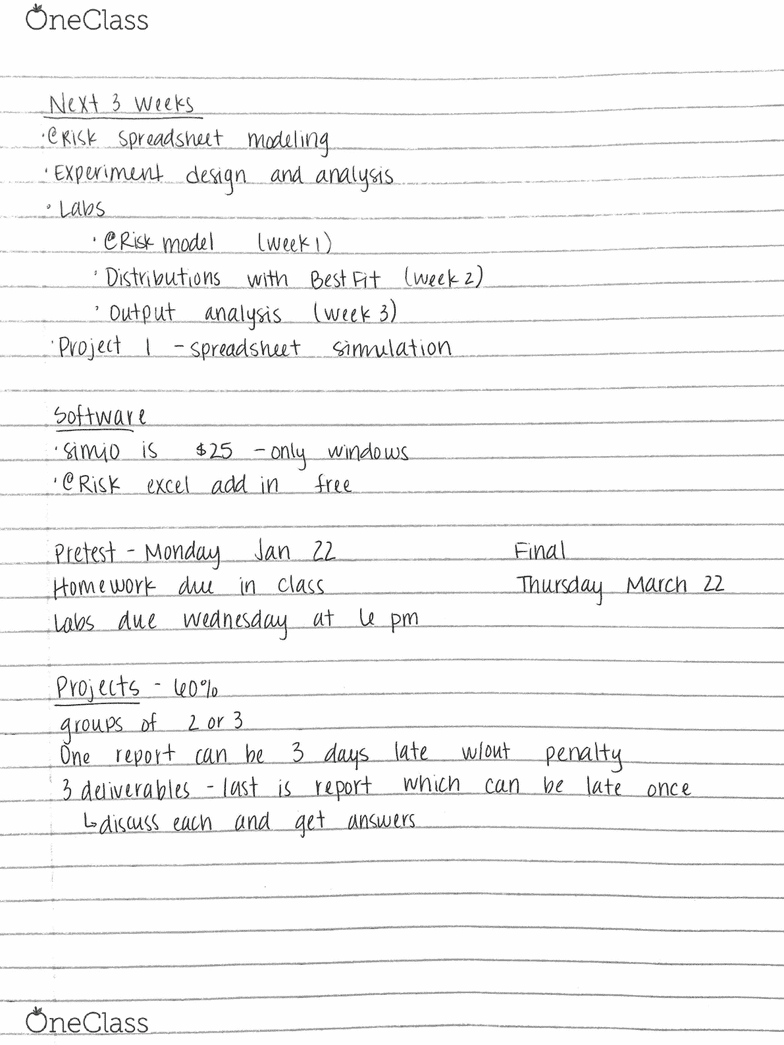 OneClass
Next 3 weeks
·@Risk spreadsheet modeling
·Experiment design and analysis
·Labs
·@Risk model (week 1)
·Distributions with BestFit (week 2)
·Output analysis (week 3)
·Project 1 - spreadsheet simulation
Software
·simio is $25 - only windows
·@Risk excel add in free
Pretest - Monday Jan 22 Final
Homework due in class Thursday March 22
Labs due Wednesday at 6 pm
Projects - 60%
groups of 2 or 3
One report can be 3 days late w/out penalty
3 deliverables - last is report which can be late once
↳discuss each and get answers
OneClass